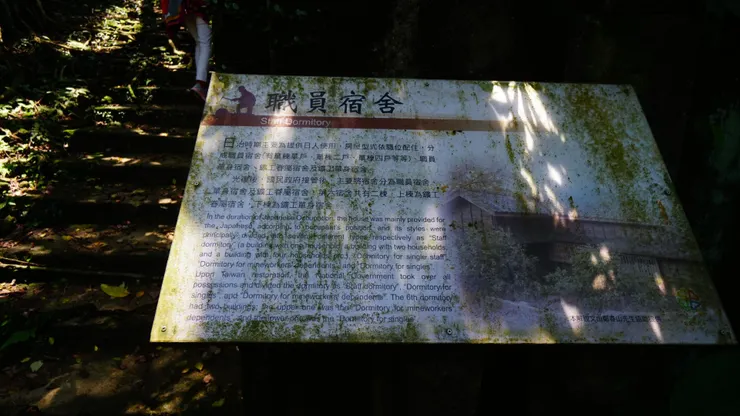 職員宿舍
Staff Dormitory
日治時期主要為提供日人使用,房屋型式依職位配住,分
成職員宿舍(有單棟單戶、單棟二戶、單棟四戶等等)、職員
單身宿舍、鑛工眷屬宿舍及鑛工單身宿舍。
光復後,國民政府接管後,主要將宿舍分為職員宿舍、
單身宿舍及鑛工眷屬宿舍,第六宿舍共有二棟,上棟為鑛工
眷屬宿舍,下棟為鑛工單身宿舍
In the duration of Japanese Occupation, the house was mainly provided for
the Japanese according to employees' position, and its styles were
principally divided and being possessed respectively as "Staff
dormitory" (a building with one household, a building with two households,
and a building with four households, etc.), "Dormitory for single staff",
"Dormitory for mineworkers' dependents", and "Dormitory for singles".
Upon Taiwan restoration, the National Government took over all
possessions and divided the dormitory as "Staff dormitory", "Dormitory for
singles", and "Dormitory for mineworkers' dependents". The 6th dormitory
had two buildings, the upper one was for "Dormitory for mineworkers'
dependents", and the lower one was the "Dormitory for singles".